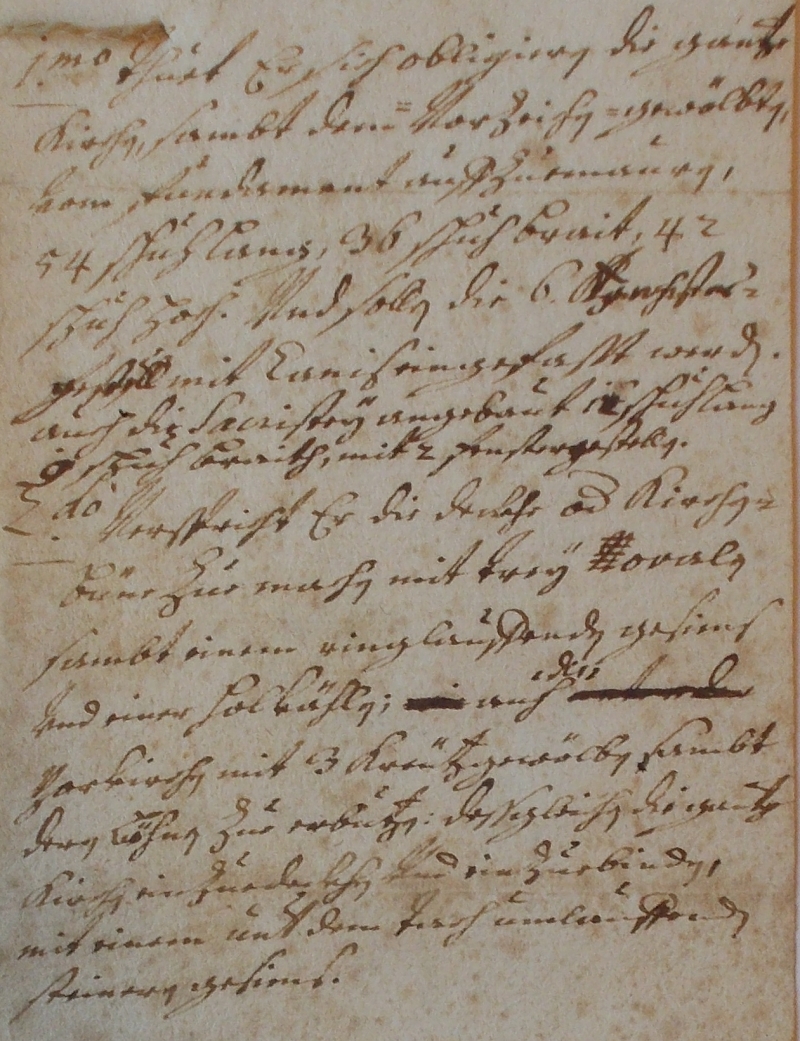 1.mo Thuet Er sich obligiern die gantze
Kirchen, sambt dem Vorzeichen=gewölben,
vom Fundament auffzuemauren,
54 schuh lang, 36 schuh brait, 42
schuh hoch. Und sollen die 6
mit eingefasst werden.
auch die Sacristey angebaut schuh lang
9 schuh braith, mit 2 fenstergestellen.
2.do Verspricht Er die deckhe od Kirchen=
büne zue machen mit drey ovalen
sambt einem ringlauffenden gesims
und einer holkählen; auch die
Vorkirchen mit 3 Kreützgewölben sambt
deren zue erbutzen: dessgleichen die gantze
Kirchen einzuedeckhen Und einzuebinden,
mit einem unt dem tach umlauffenden
steinern gesims.